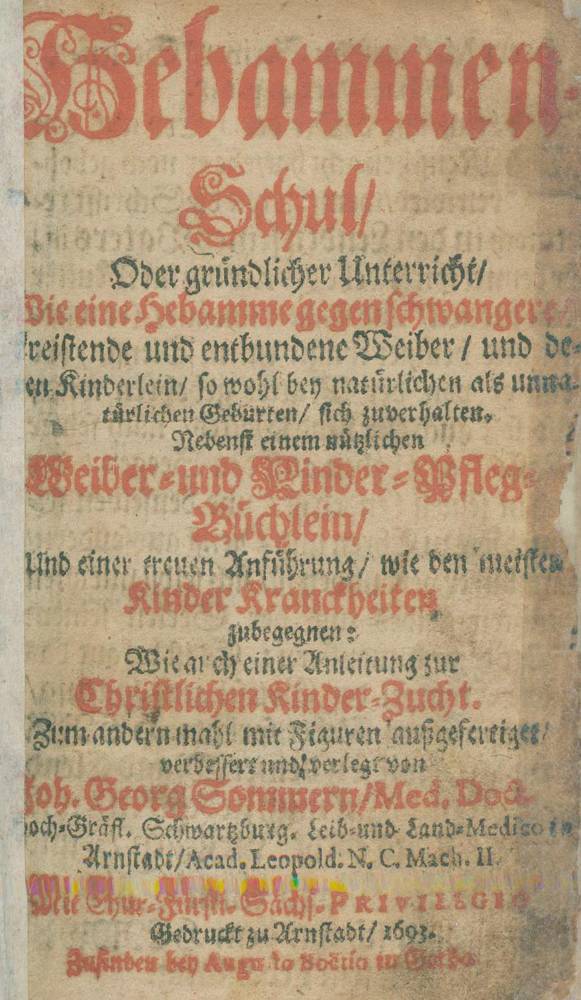 Hebammen-
Schul/
Oder gründlicher Unterricht/
Wie eine Hebamme gegen schwangere/
kreistende und entbundene Weiber/ und de-
ren Kinderlein/ so wohl bey natürlichen als unna-
türlichen Geburten/ sich zuverhalten.
Nebenst einem nützlichen
Weiber-und Kinder-Pfleg-
Büchlein/
Und einer treuen Anführung/ wie den meisten
Kinder Kranckheiten
zubegegnen:
Wie auch einer Anleitung zur
Christlichen Kinder-Zucht.
Zum andern mahl mit Figuren außgefertiget/
verbessert und verlegt von
Joh. Georg Sommern/Med. Doct.
Hoch-Gräfl. Schwartzburg. Leib-und Land-Medico in
Arnstadt/Acad. Leopold. N. C. Mach. II.
Mit Chur-Fürstl. Sächs. PRIVILEGIO
Gedruckt zu Arnstadt/ 1693.
Zufinden bey Augusto Boëtio in Gotha